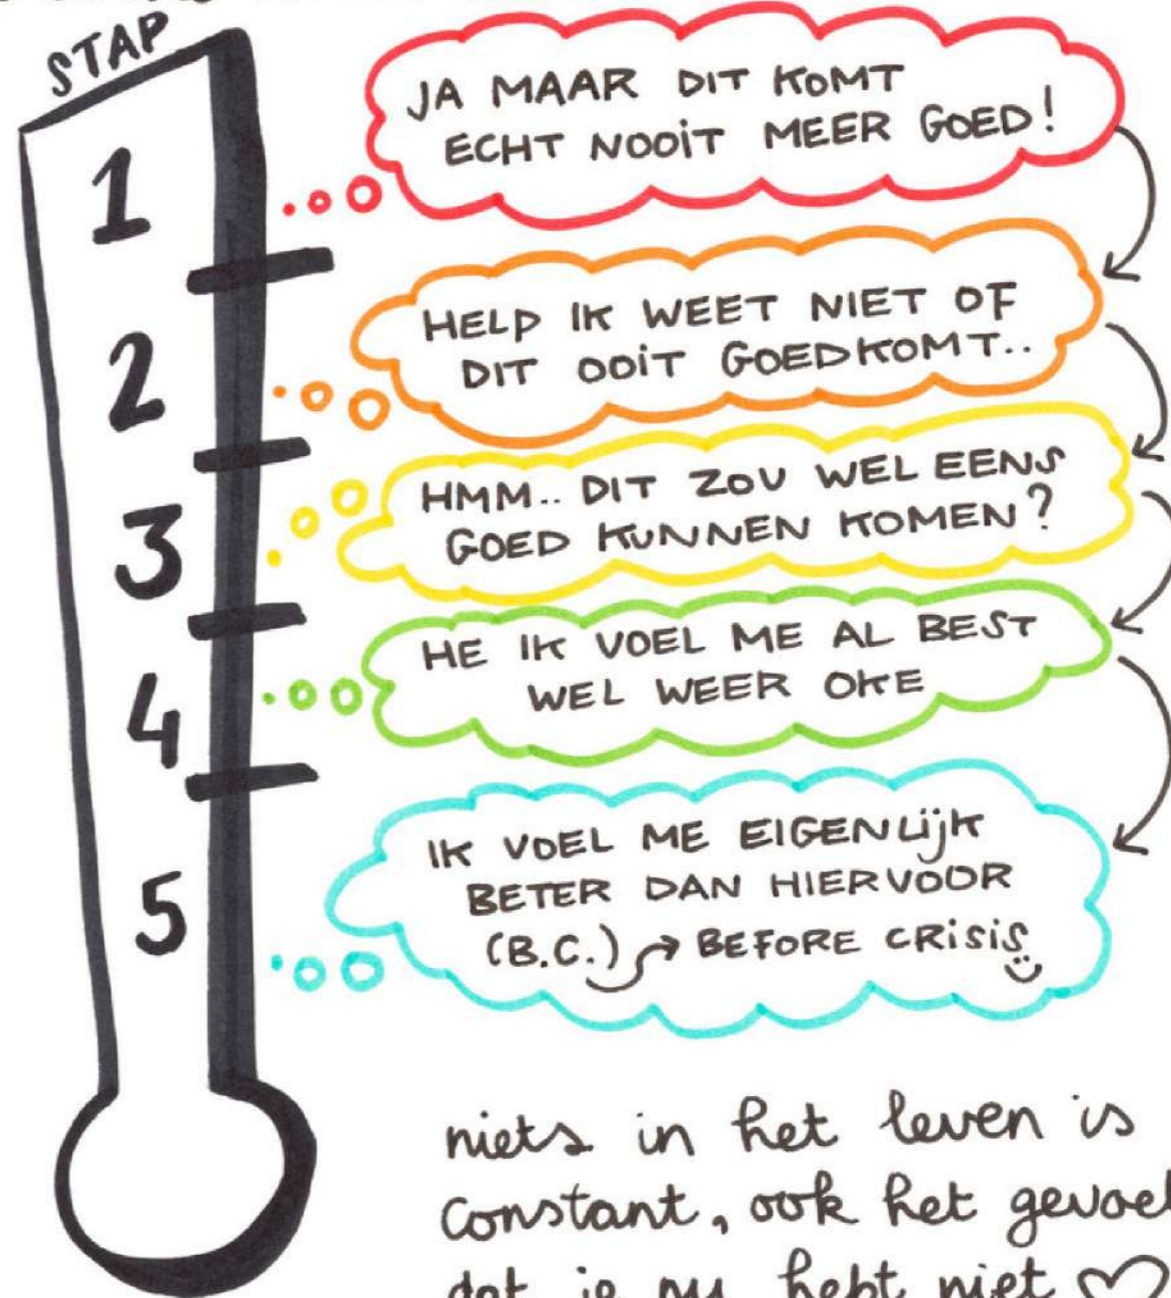 STAP
1
JA MAAR DIT KOMT
ECHT NOOIT MEER GOED!
2
HELP IK WEET NIET OF
DIT OOIT GOEDKOMT..
3
HMM.. DIT ZOU WEL EENS
GOED KUNNEN KOMEN?
4
HE IK VOEL ME AL BEST
WEL WEER OKE
5
IK VOEL ME EIGENLIJK
BETER DAN HIERVOOR
(B.C.) → BEFORE CRISIS
niets in het leven is
constant, ook het gevoel
dat je nu hebt niet ♡